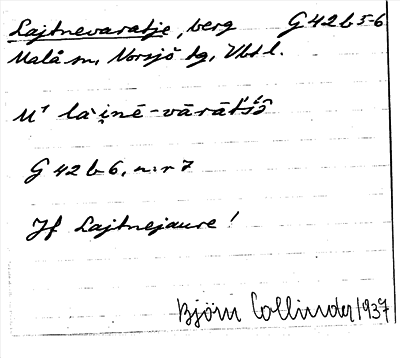 Lajtnevaratje, berg G 42 b 5-6
Malå sn, Norsjö tg, Vbt l.
G 42 b 6, n:r 7
Jf Lajtnejaure!
Björn Collinder 1937